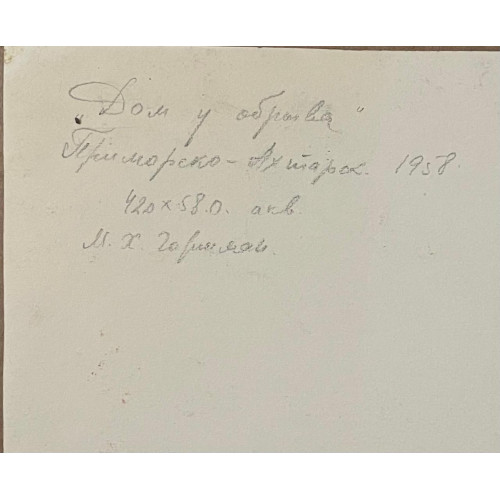 „Дом у обрыва"
Приморско-Ахтарск. 1958.
420×580. акв.
М. Х.